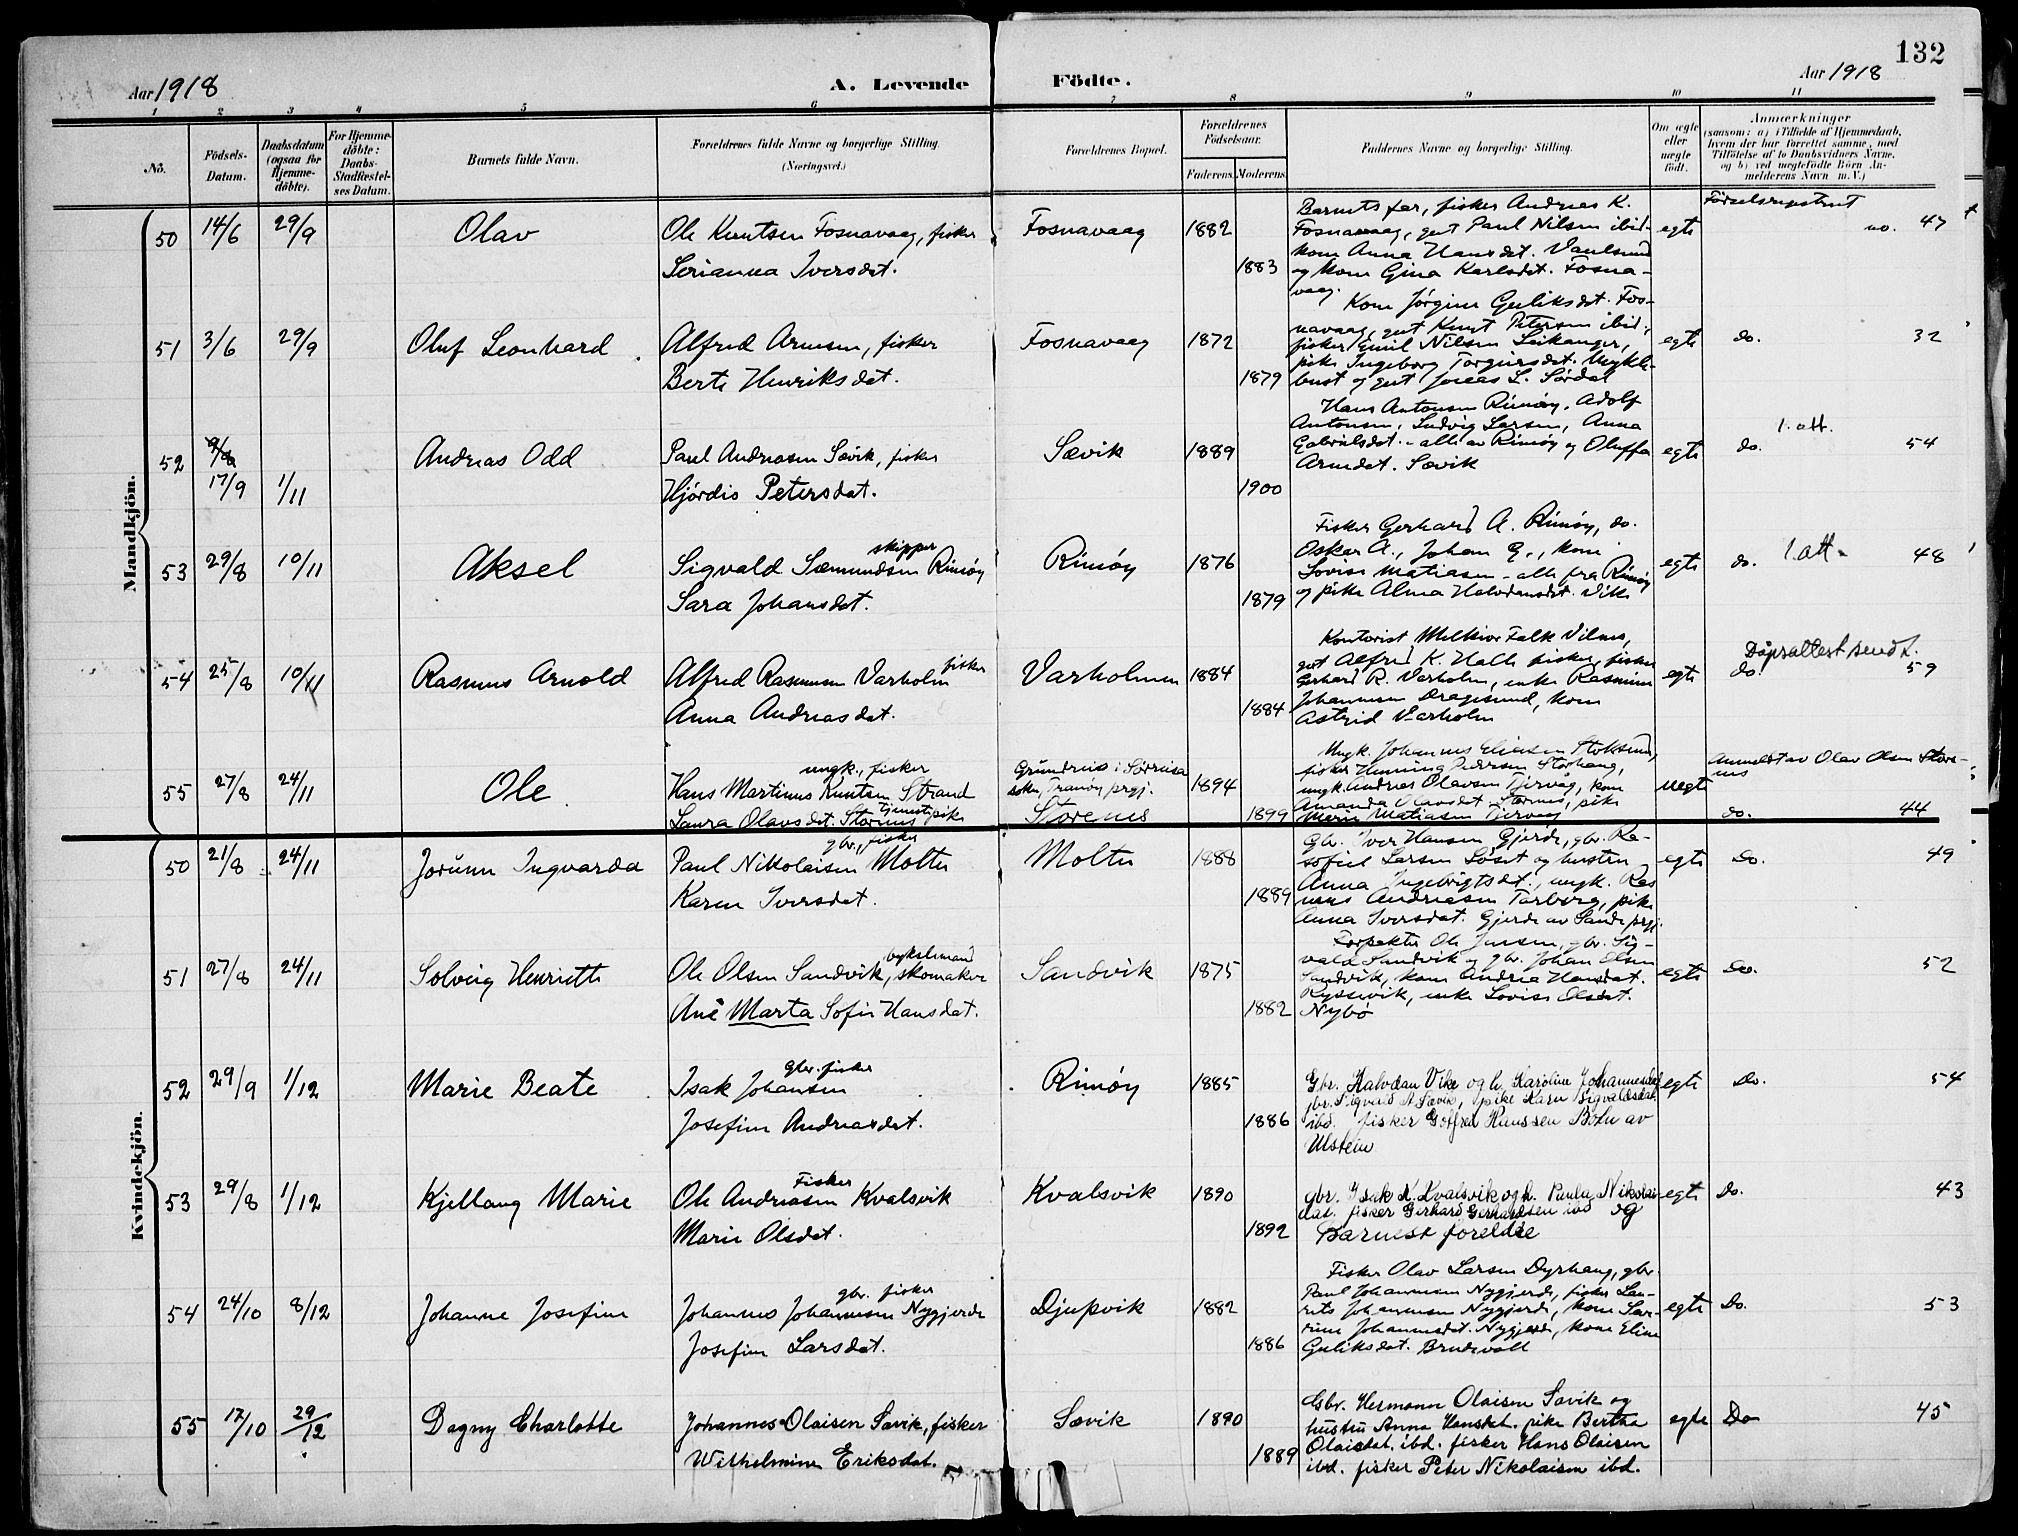 132
Aar 1918 A. Levende Födte. Aar 1918
1 2 3 4 5 6 7 8 9 10 11
No. Födsels-Datum. Daabsdatum (ogsaa for Hjemme-döbte). For Hjemme-döbte: Daabs-Stadfæstel-ses Datum. Barnets fulde Navn. Forældrenes fulde Navne og borgerlige Stilling. (Næringsvei.) Forældrenes Bopæl. Forældrenes Födselsaar. Faderens. Moderens. Faddernes Navne og borgerlige Stilling. Om ægte eller uægte födt. Anmærkninger
(saasom: a) i Tilfælde af Hjemmedaab,
hvem der har forrettet samme, med
Tilföielse af to Daabsvidners Navne,
og b) ved uægtefödte Börn An-
melderens Navn m. V.)
Mandkjön.
50 14/6 29/9 Olav Ole Knutsen Fosnavaag, fisker Fosnavaag 1882 egte Födselsregistret no. 47
Serianna Iversdat. 1883
Barnets far, fisker Andreas K.
Fosnavaag, gut Paul Nilsen ibid.
kone Anna Hansdat.
og kone Gina Karlsdat. Fosna-
vaag.
51 3/6 29/9 Oluf Leonhard Alfred Arnesen, fisker Fosnavaag 1872 egte do. 32
Berte Henriksdat. 1879
Kone Jørgine Guliksdat. Fos-
navaag, gut Knut Petersen ibid.,
fisker Emil Nilsen Leikanger,
pike Ingeborg Torgeirsdat. Mykle-
bust og gut Jonas L. Sørdal
52 9/8 Andreas Odd Paul Andreasen Sævik, fisker Sævik 1889 egte do. 1. att. 54
17/9 1/11 Hjórdis Petersdat. 1900
Hans Antonsen Rimöy, Adolf
Antonsen, Ludvig Larsen, Anna
Gabrielsdat. - alle av Rimöy og Oluffa
Arnedat. Sævik
53 29/8 10/11 Aksel Sigvald Sæmundsen Rimöy skipper Rimöy 1876 egte do. 1. att. 48
Sara Johansdat. 1879
Fisker Gerhard A. Rimöy, do.
Oskar A., Johan G., kone
Lovise Matiasen - alle fra Rimöy
og pike Alma Halvdansdat. Vike
54 25/8 10/11 Rasmus Arnold Alfred Rasmusen Varholm fisker Varholmen 1884 egte Döpsattest sendt. do. 59
Anna Andreasdat. 1884
Kontorist Melkior Falk Vilnes,
gut Alfred K. Halle fisker, fisker
Gerhard R. Varholm, enke Rasmine
Johannesen Dragesund, kone
Astrid Varholm
55 27/8 24/11 Ole Hans Martinus Knutsen Strand ungk., fisker Grundreis i Sørreisa sokn, Tranöy prgj. 1894 uegte Anmeldt av Olav Olsen Store-nes
Laura Olavsdat. Storenes tjenestpike Storenes 1899 do. 44
Ungk. Johannes Eliasen Stoksund,
fisker Henning Pedersen Storhaug,
ungk. Andreas Olavsen Tjervåg, kone
Amanda Olavsdat. Storenes, pike
Marie Matiasen Tjervåg
Kvindekjön.
50 21/8 24/11 Jorunn Ingvarda Paul Nikolaisen Moltu gbr., fisker Moltu 1888 egte Do. 49
Karen Iversdat. 1889
Gbr. Iver Hansen Gjerde, gbr. Ra-
Larsen Löset og hustru
Anna Ingebrigtsdat., ungk. Ras
mus Andreasen Tarberg, pike
Anna Iversdat. Gjerde av Sande prgj.
51 27/8 24/11 Solveig Henriette Ole Olsen Sandvik, skomaker bykselmand Sandvik 1875 egte do. 52
Ane Marta Sofie Hansdat. 1882
Forpakter Ole Jensen, gbr. Sig-
vald Sandvik og gbr. Johan Olsen
Sandvik, kone Andrea Hansdat.
enke Lovise Olsdat.
Nybö
52 29/9 1/12 Marie Beate Isak Johansen gbr. fisker Rimöy 1885 egte Do. 54
Josefine Andreasdat. 1886
Gbr. Halvdan Vike og h. Karoline Johannesdat
gbr. Sigvald A Sævik, pike Karen Sigvaldsdat.
ibd. fisker Gotfred Hanssen Botn av
Ulstein
53 29/8 1/12 Kjellaug Marie Ole Andreasen Kvalsvik Fisker Kvalsvik 1890 egte Do. 43
Marie Olsdat. 1892
gbr. Isak K. Kvalsvik og h. Paula Nikolai-
dat. fisker Gerhard Gerhardsen ibd og
Barnest foreldre
54 24/10 8/12 Johanne Josefine Johannes Johannesen Nygjerde gbr. fisker Djupvik 1882 egte Do. 53
Josefine Larsdat. 1886
Fisker Olav Larsen Dyrhaug, gbr.
Paul Johannesen Nygjerde, fisker Lau-
rits Johannesen Nygjerde, kone Sev-
rine Johannesdat. Nygjerde, kone Eline
Guliksdat. Brudevoll
55 17/10 29/12 Dagny Charlotte Johannes Olaisen Sævik, fisker Sævik 1890 egte Do 45
Wilhelmine Eriksdat. 1889
Gbr. Hermann Olaisen Sævik og
hustru Anna Hansdat. pike Berthe
Olaisdat. ibd. fisker Hans Olaisen
ibd. fisker Peter Nikolaisen ibd.